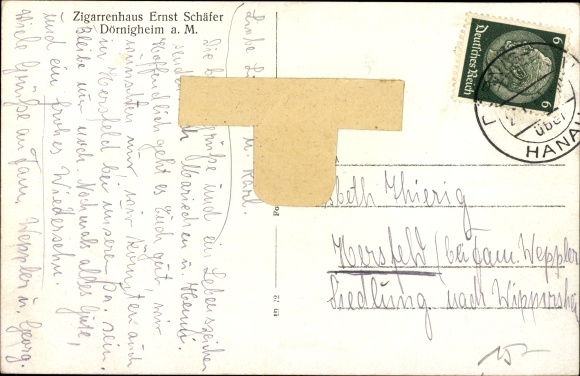 Zigarrenhaus Ernst Schäfer
Dörnigheim a. M.
Liebe u. Karl.
Die Grüße und ein Lebenszeichen
senden Mariechen u.
Hoffentlich geht es Euch gut, wir
wünschten nur, wir könnten auch
in Hersfeld bei unserem Pa. sein.
Bleibe nur noch. Nochmals alles Gute,
und ein frohes Wiedersehn.
Viele Grüße an Fam. Weppler u. Georg.
Deutsches Reich
6
6
über
HANAU
Thierig
Hersfeld bei Fam. Weppler
Siedlung nach